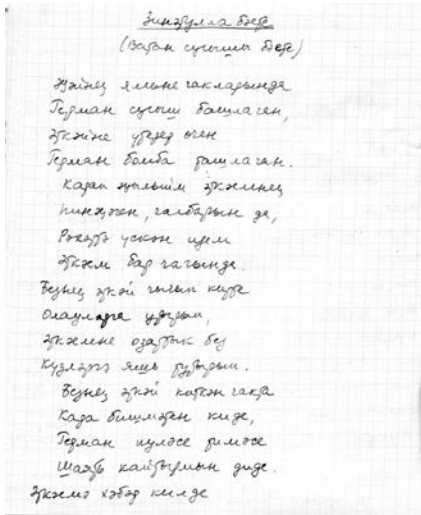 Зиннәтулла бәете
(Ватан сугышы бәете)
Җәйнең ямьле чакларында
Герман сугыш башлаган,
Әткәйне үтерер өчен
Герман бомба ташлаган.
Карап җылыйм әткәмнең
Пинжәген, чалбарын да,
Рәхәттә үскән идем
Әткәм бар чагында.
Безнең әткәй чыгып китте
Олауларга утырып,
Әткәмне озаттык без
Күзләргә яшь тутырып.
Безнең әткәй киткән чакта
Кара бишмәтен киде,
Герман пуләсе тимәсе
Шаять кайтырмын диде.
Әткәмә хәбәр килде